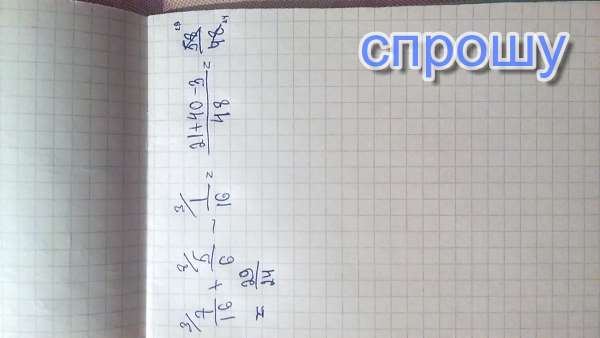 спрошу
3/ 7/16 + 5/6 - 3/ 1/16 = 21+40-3/48 = 58 29/48 24
= 29/24